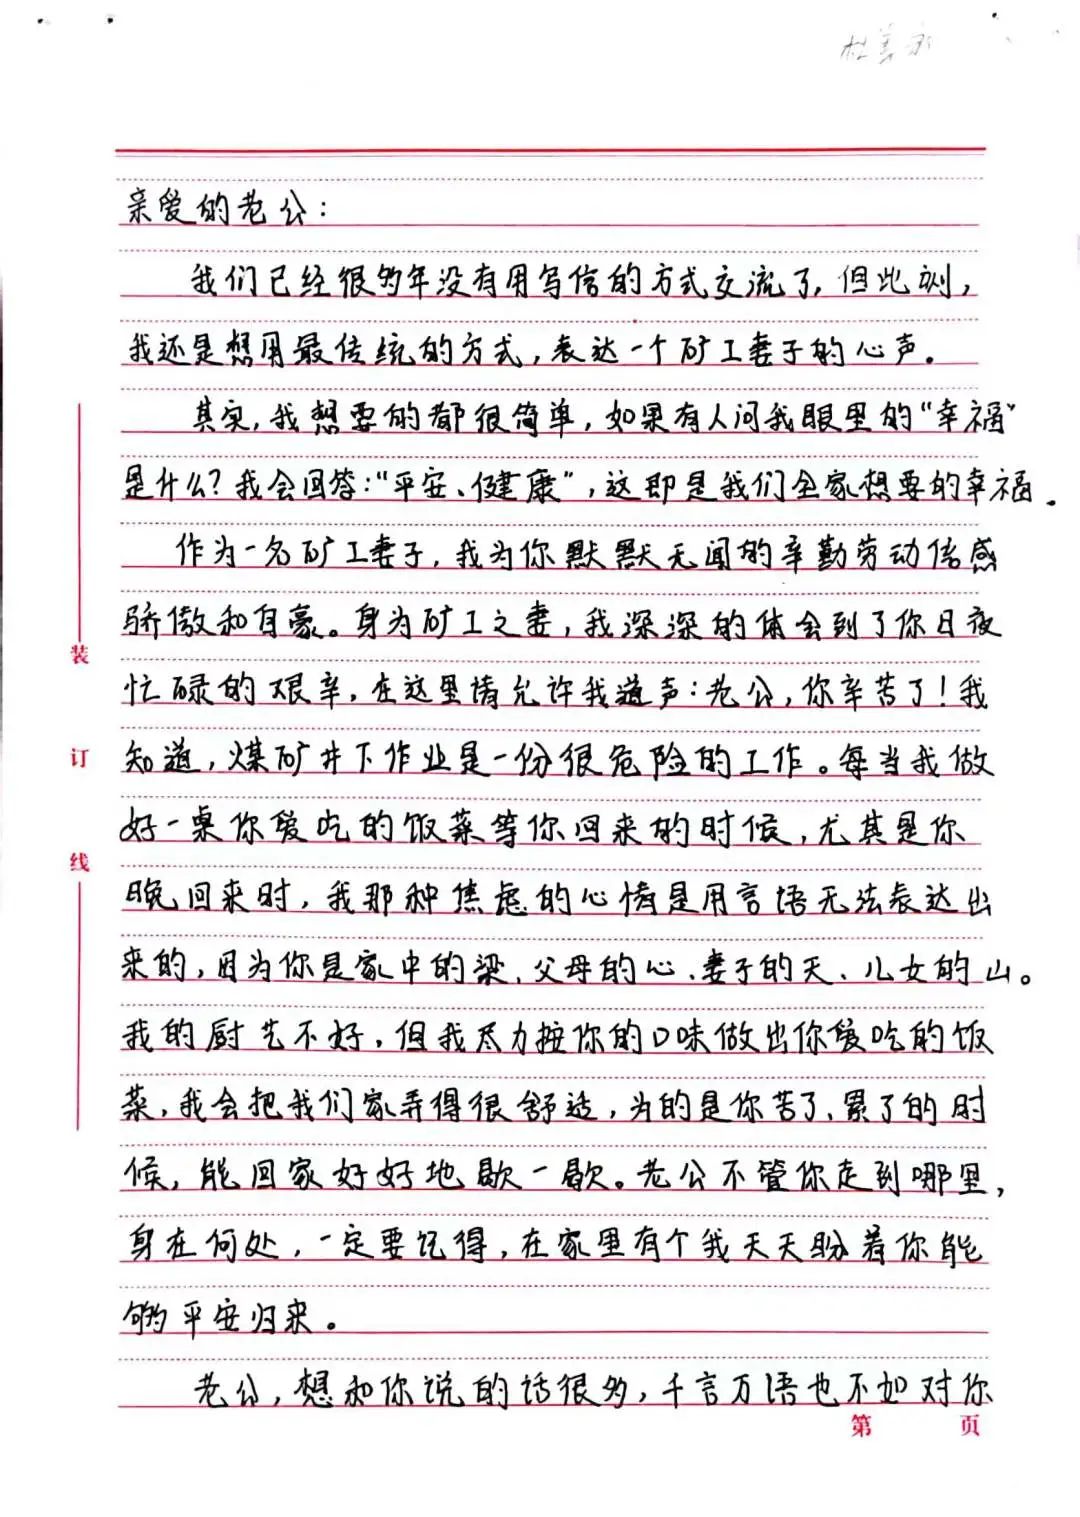 亲爱的老公：
我们已经很多年没有用写信的方式交流了，但此刻，
我还是想用最传统的方式，表达一个矿工妻子的心声。
其实，我想要的都很简单，如果有人问我眼里的“幸福”
是什么？我会回答：“平安、健康”，这即是我们全家想要的幸福．
作为一名矿工妻子，我为你默默无闻的辛勤劳动倍感
骄傲和自豪。身为矿工之妻，我深深的体会到了你日夜
忙碌的艰辛，在这里请允许我道声：老公，你辛苦了！我
知道，煤矿井下作业是一份很危险的工作。每当我做
好一桌你爱吃的饭菜等你回来的时候，尤其是你
晚回来时，我那种焦虑的心情是用言语无法表达出
来的，因为你是家中的梁、父母的心、妻子的天、儿女的山。
我的厨艺不好，但我尽力按你的口味做出你爱吃的饭
菜，我会把我们家弄得很舒适，为的是你苦了、累了的时
候，能回家好好地歇一歇。老公不管你走到哪里，
身在何处，一定要记得，在家里有个我天天盼着你能
够平安归来。
老公，想和你说的话很多，千言万语也不如对你
装
订
线
第 页